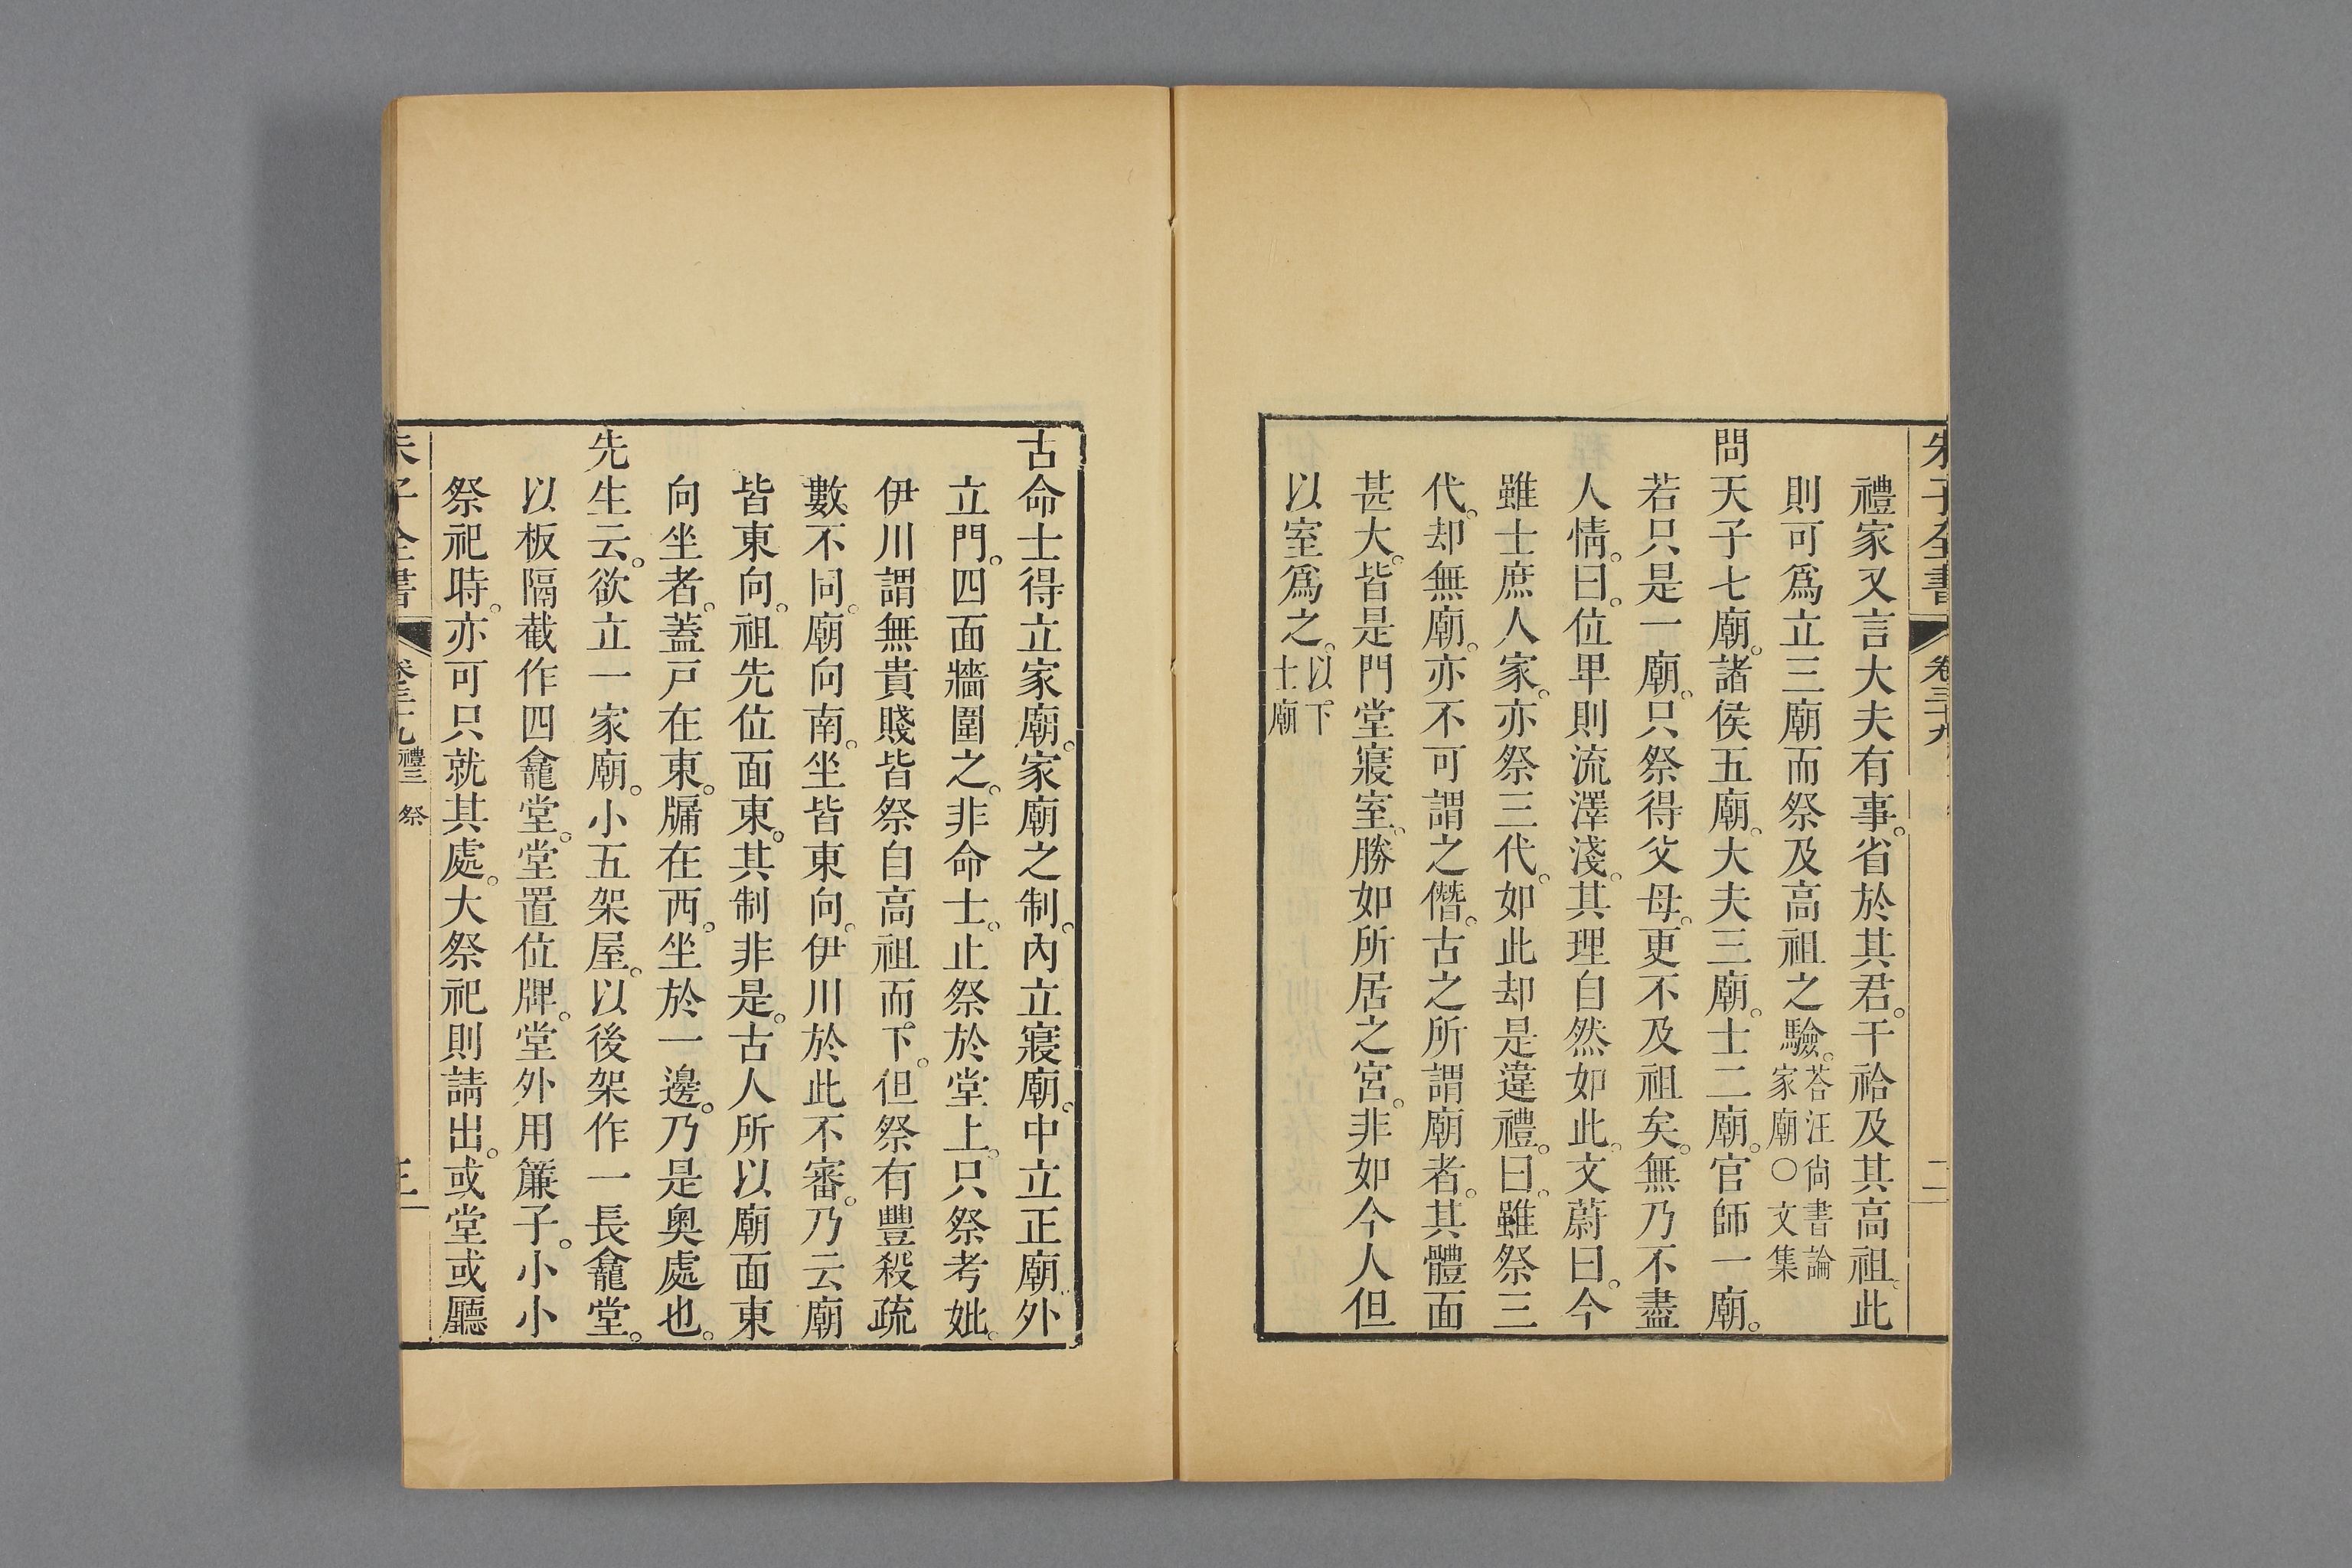 朱子全書 卷三十九 二
禮家又言大夫有事。省於其君。干祫及其高祖。此
則可爲立三廟而祭及高祖之驗。荅汪尙書論家廟○文集
問天子七廟。諸侯五廟。大夫三廟。士二廟。官師一廟。
若只是一廟。只祭得父母。更不及祖矣。無乃不盡
人情。曰。位卑則流澤淺。其理自然如此。文蔚曰。今
雖士庶人家。亦祭三代。如此却是違禮。曰。雖祭三
代。却無廟。亦不可謂之僭。古之所謂廟者。其體面
甚大。皆是門堂寢室。勝如所居之宮。非如今人但
以室爲之。以下士廟
古命士得立家廟。家廟之制。內立寢廟。中立正廟。外
立門。四面牆圍之。非命士。止祭於堂上。只祭考妣。
伊川謂無貴賤皆祭自高祖而下。但祭有豐殺疏
數不同。廟向南。坐皆東向。伊川於此不審。乃云廟
皆東向。祖先位面東。其制非是。古人所以廟面東
向坐者。蓋戸在東。牖在西。坐於一邊。乃是奧處也。
先生云。欲立一家廟。小五架屋。以後架作一長龕堂。
以板隔截作四龕堂。堂置位牌。堂外用簾子。小小
祭祀時。亦可只就其處。大祭祀則請出。或堂或廳
朱子全書 卷三十九 禮三 祭 三